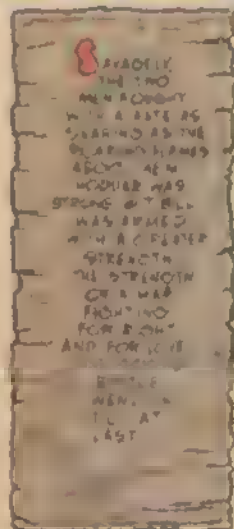 SAVAGELY
THE TWO
MEN FOUGHT
WITH A HATE AS
SEARING AS THE
ROARING FLAMES
ABOUT THEM
WAS
STRONG BUT
WAS ARMED
WITH A GREATER
STRENGTH
THE STRENGTH
OF A MAN
FIGHTING
FOR RIGHT
AND FOR LOVE
BATTLE
WENT
AT
LAST